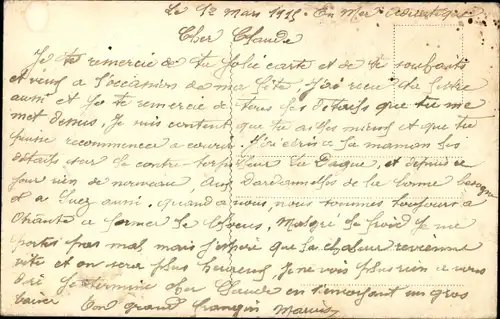 Le 12 Mars 1915. En Mer Adriatique
Cher Claude
Je te remercie de ta jolie carte et de te souhaits
et veux a l'occasion de ma fête. J'ai recu ta lettre
aussi et je te remercie de tous les details que tu me
met dessus. Je suis content que tu ailles mieux et que tu
puisse recommencer a courir. J'ai écris a la maman les
details sur le contre-torpilleur la Dague, et depuis ce
jour rien de nouveau, Aux Dardanelles de la bonne besogne
et a chez aussi. quand a nous, nous sommes toujours a
Otrante a fermer le blocus. Malgre le froid je me
portes pas mal mais j'espère que la chaleur revienne
vite et on sera plus heureux. Je ne vois plus rien a vous
dire je termine cher Claude en t'envoyant un gros
baiser Ton grand français Marius